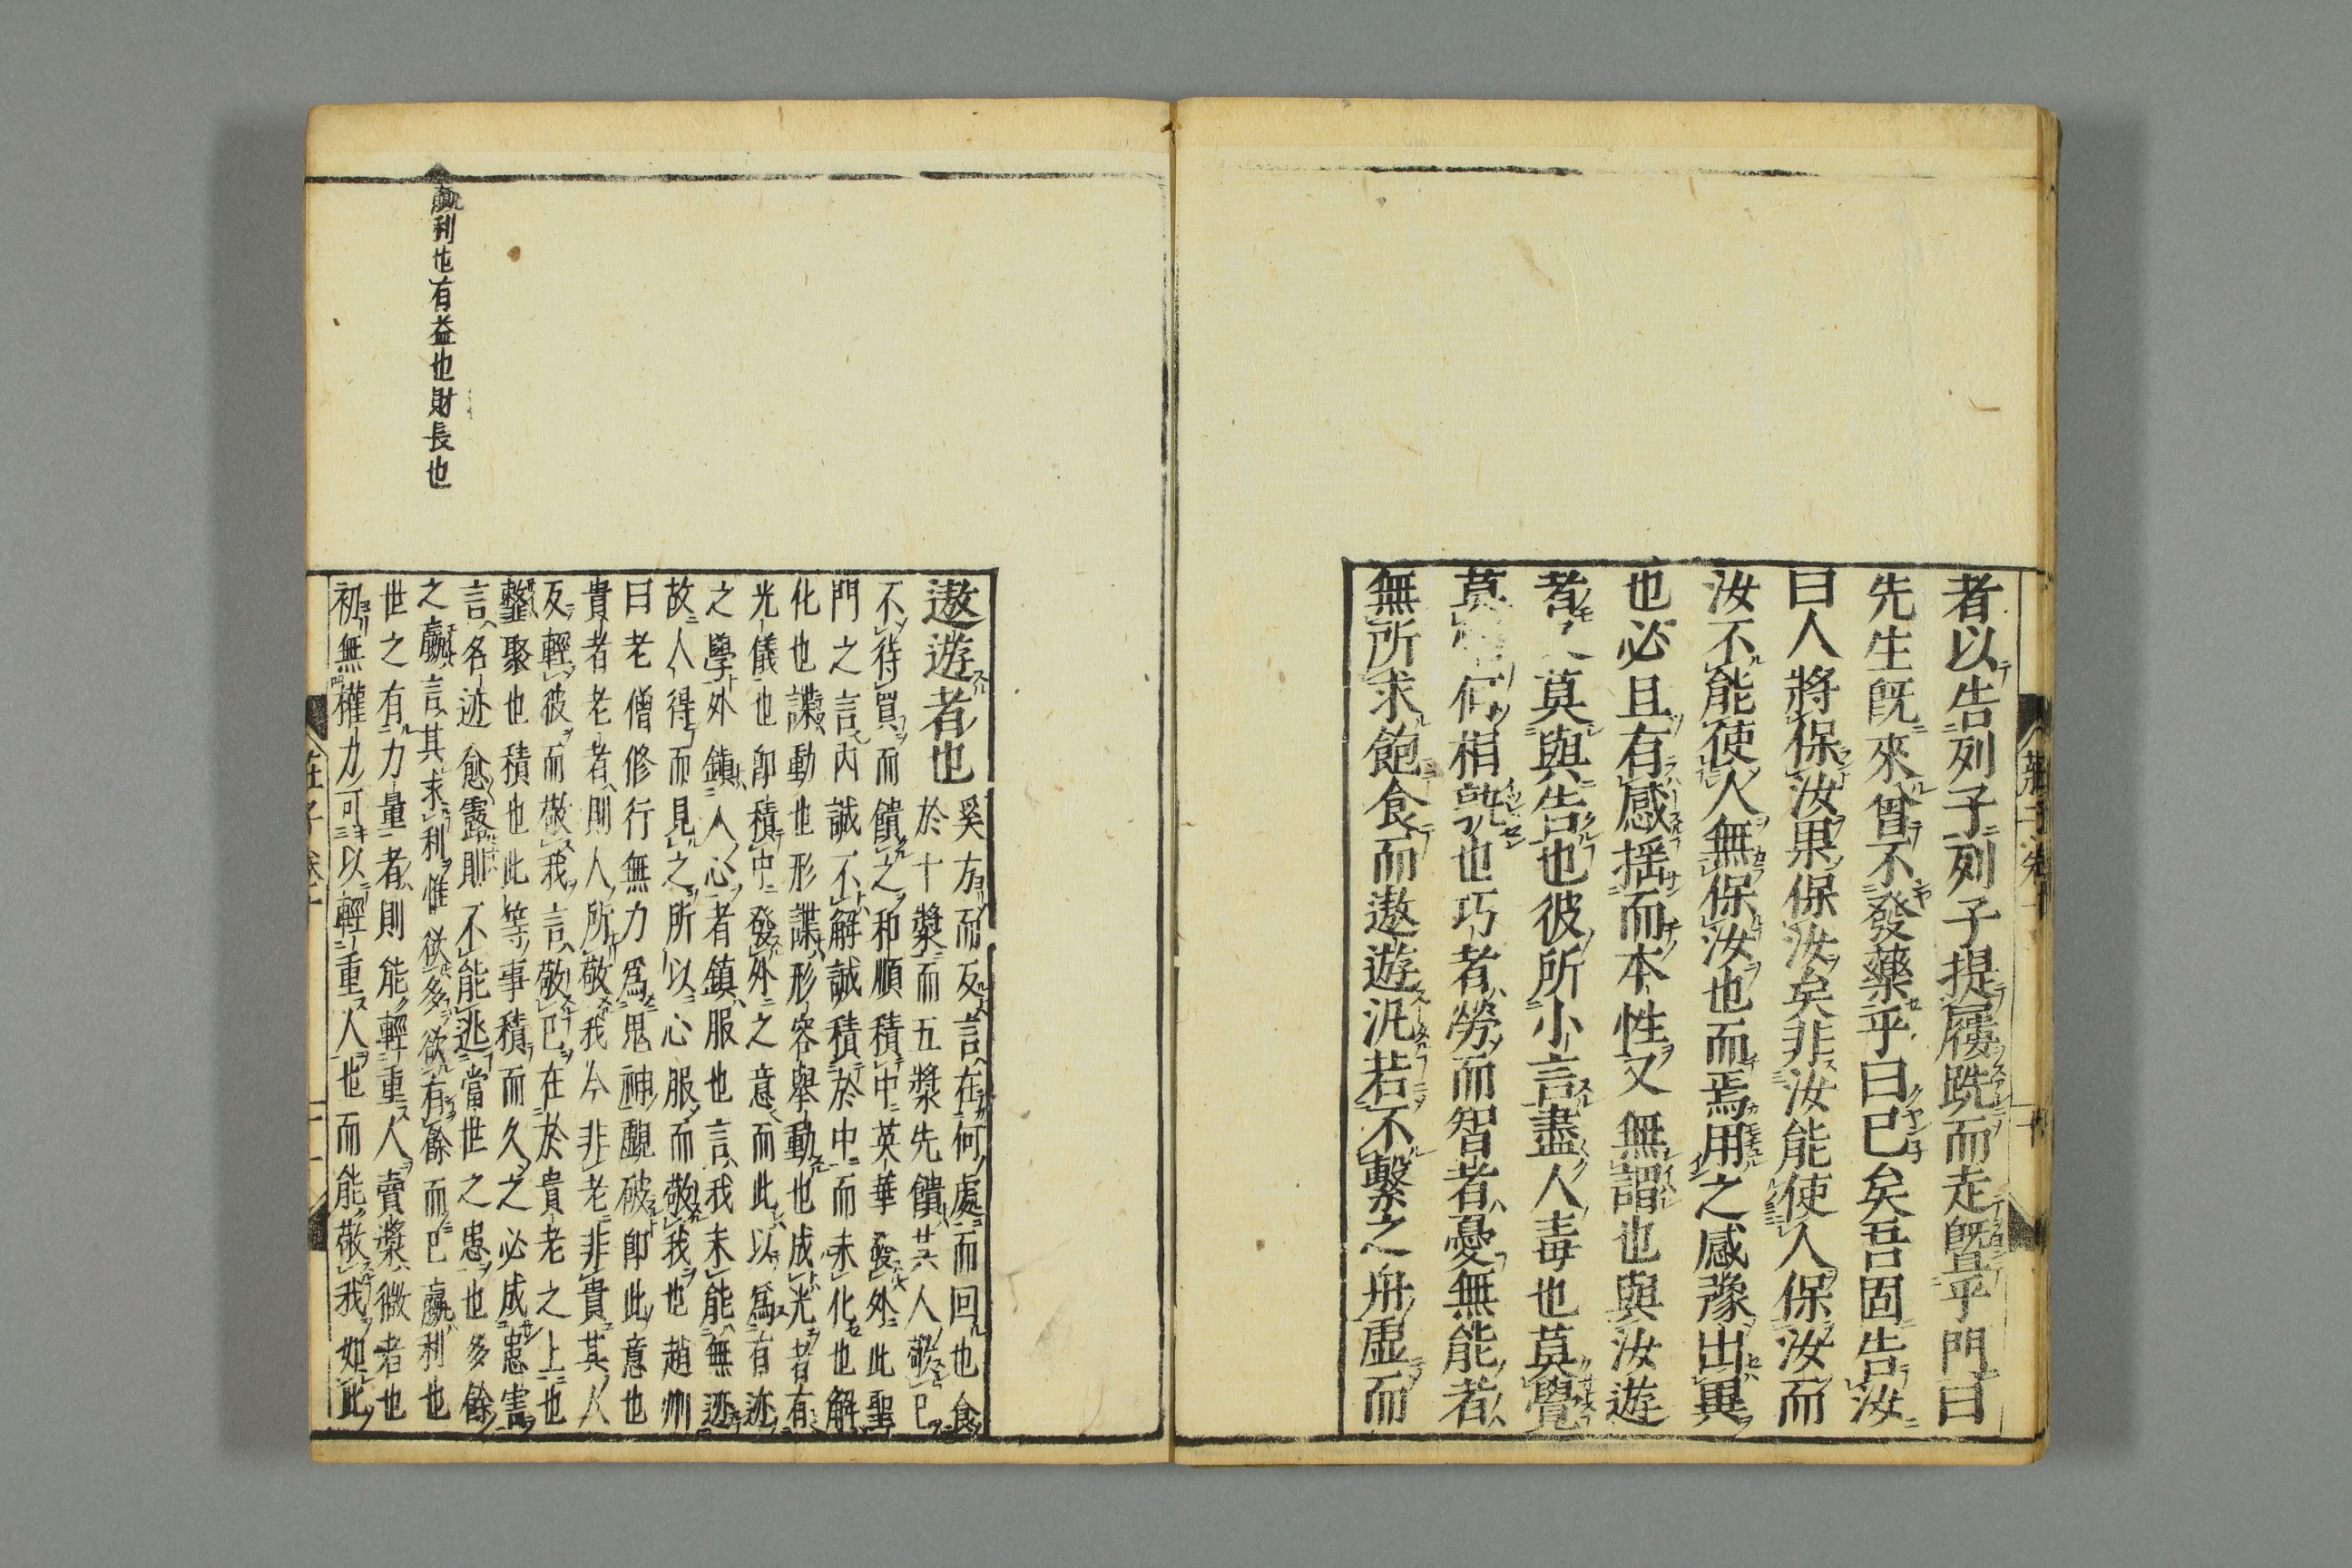 者以告列子列子提屨跣而走曁乎門曰
先生既來曾不發藥乎曰已矣吾固告汝
曰人將保汝果保汝矣非汝能使人保汝而
汝不能使人無保汝也而焉用之感豫出異
也必且有感揺而本性又無謂也與汝遊
者 莫與告也彼所小言盡人毒也莫覺
莫 何相孰也巧者勞而智者憂無能者
無所求飽食而遨遊汎若不繫之舟虚而
莊子卷十
遨遊者也
奚方而反言在何處而回也食
於十漿而五漿先饋廿六人敬已
不待買而饋之和順積中英華發外此聖
門之言内誠不解誠積於中而未化也解
化也諜動也形諜形容舉動也成光者有
光儀也即積中發外之意而此以為有迹
之學外鎮人心者鎮服也言我未能無迹
故人得而見之所以心服而敬我也趙州
曰老僧修行無力為鬼神覷破即此意也
貴者老者則人所敬我今非老非貴其人
反輕彼而敬我言敬已在於貴老之上也
䪡聚也積也此等事積而久之必成患害
言名迹愈露則不能逃當世之患也多餘
之贏言其求利惟欲多欲有餘而已贏利也
世之有力量者則能輕重人賣漿微者也
初無權力可以輕重人也而能敬我如此
贏利也有益也財長也
莊子卷十